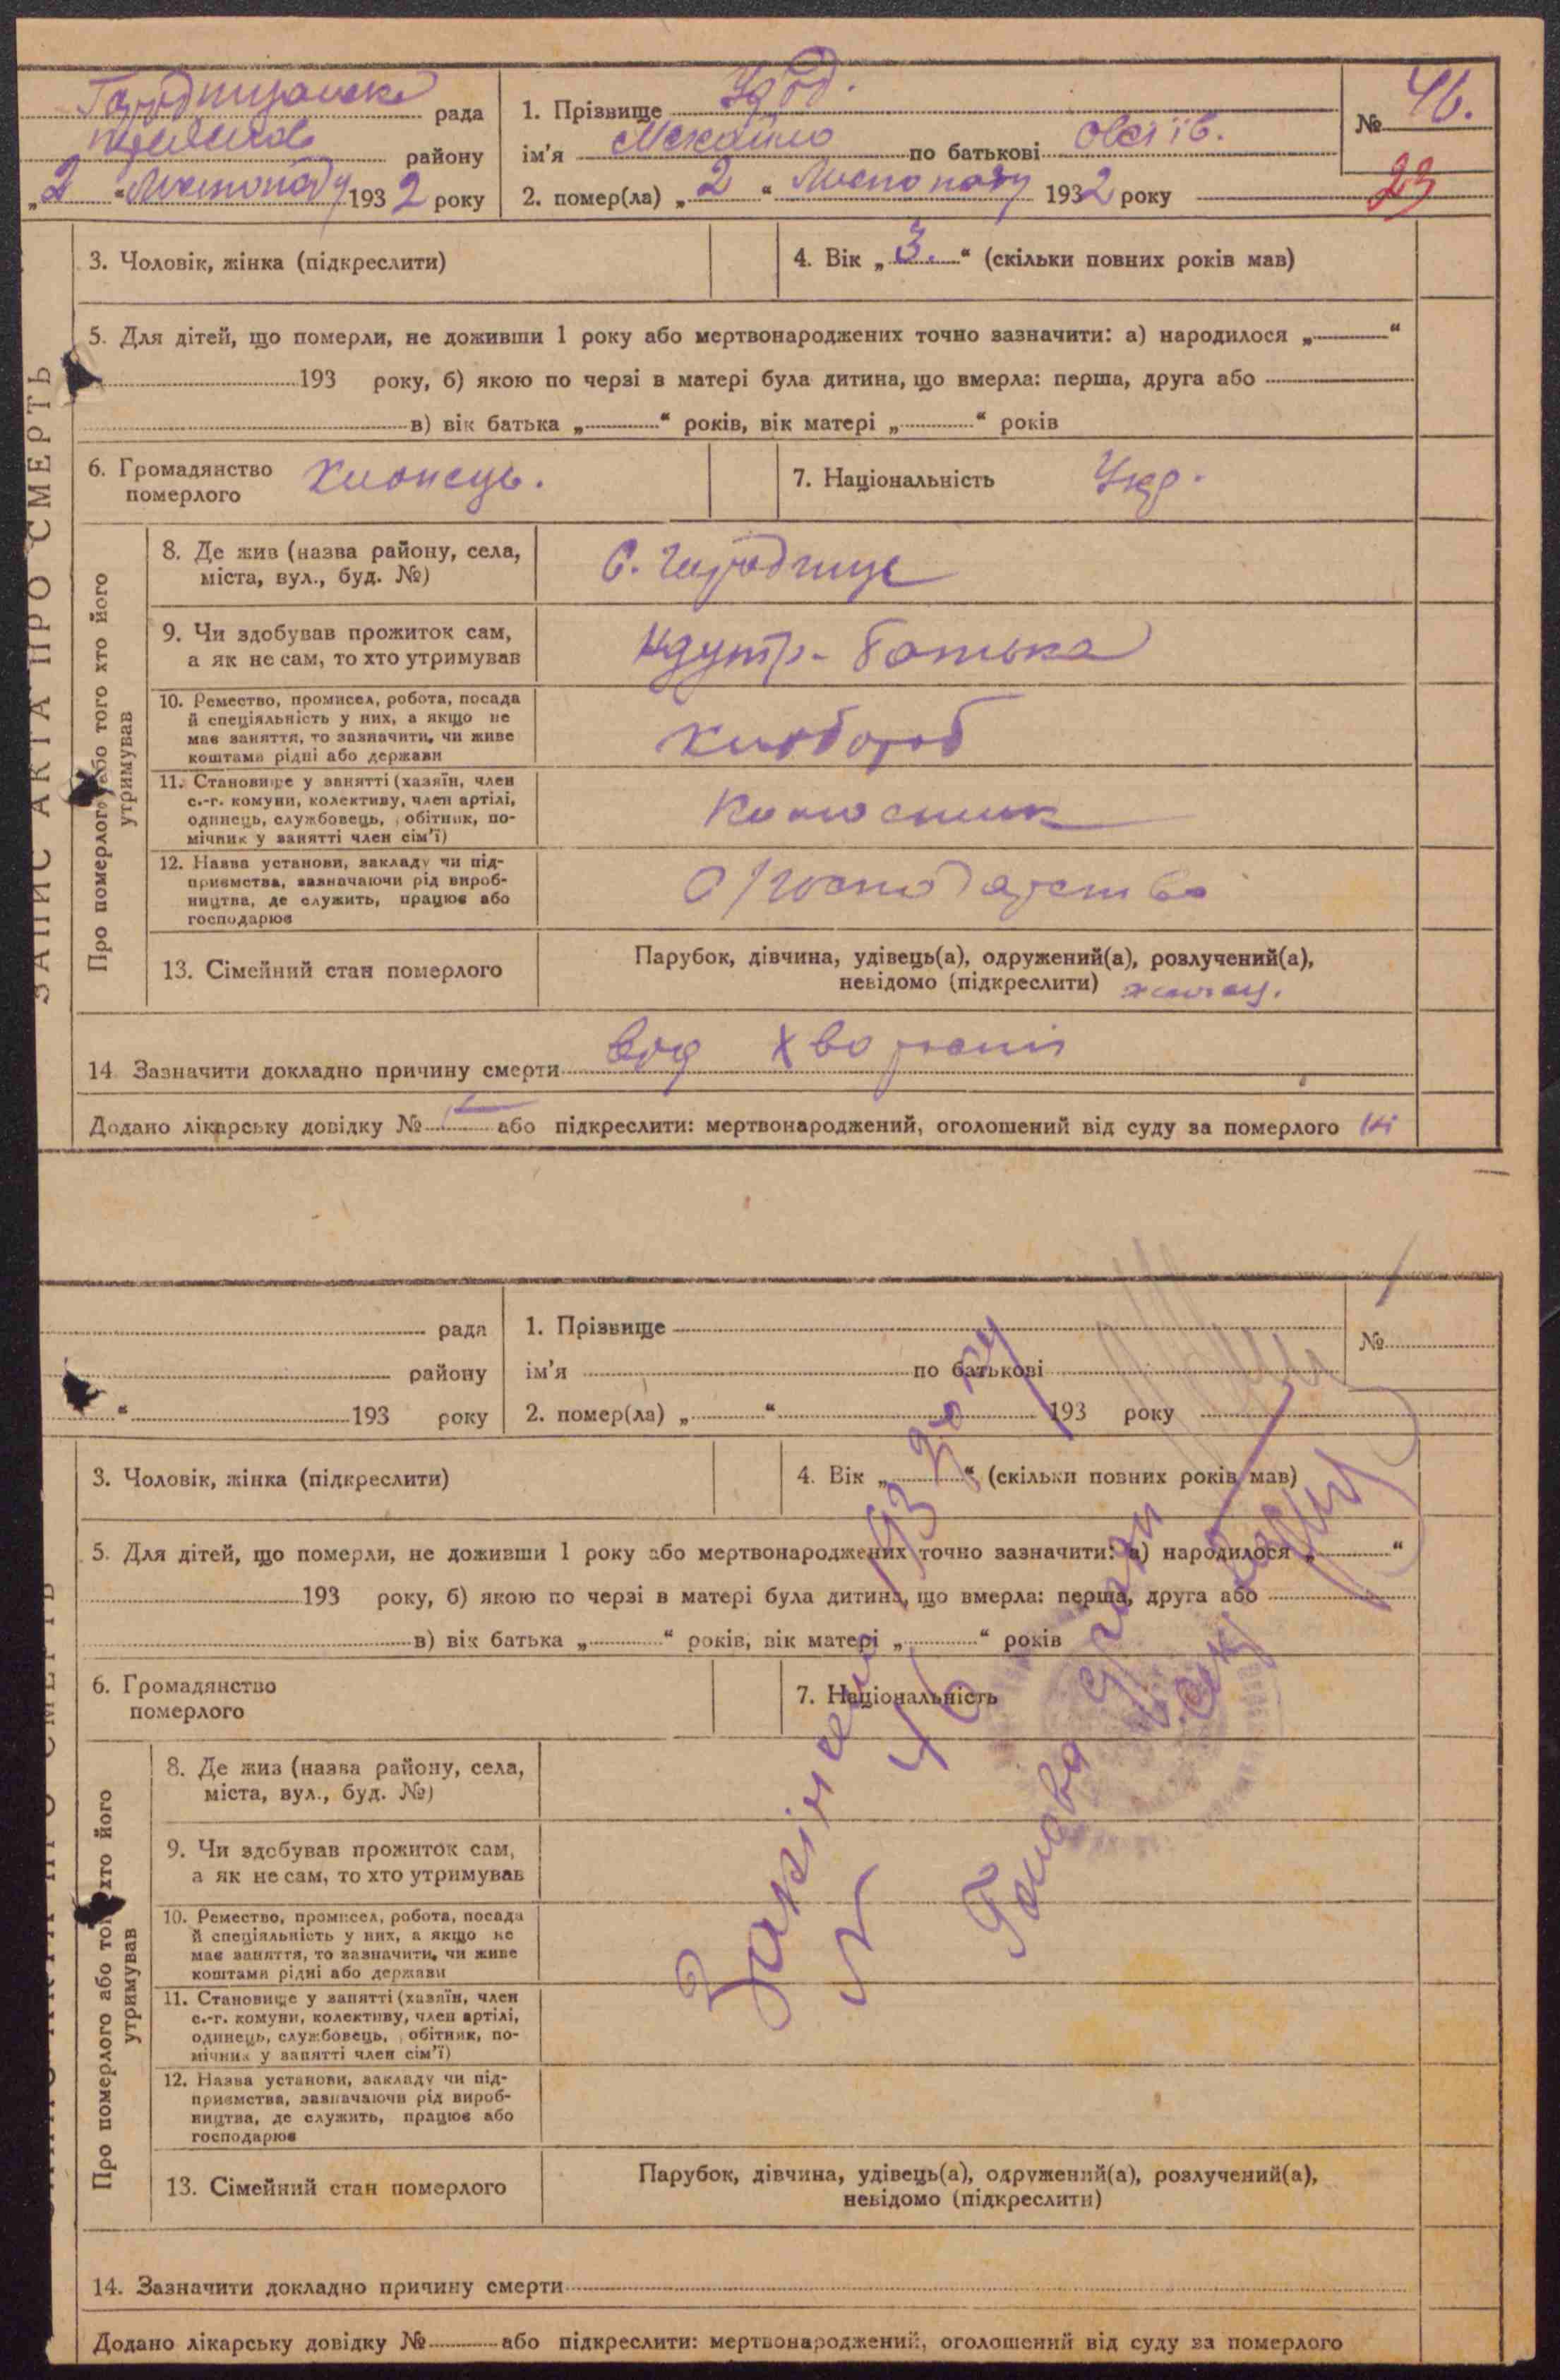 Городищанська рада
району
„2“ Листопаду 1932 року
1. Прізвище Удод.
ім'я Михайло по батькові Овсіїв.
2. помер(ла) „2“ Листопаду 1932 року
№ 46.
23
ЗАПИС АКТА ПРО СМЕРТЬ
3. Чоловік, жінка (підкреслити)
4. Вік „3.“ (скільки повних років мав)
5. Для дітей, що померли, не доживши 1 року або мертвонароджених точно зазначити: а) народилося „ “
193 року, б) якою по черзі в матері була дитина, що вмерла: перша, друга або
в) вік батька „ “ років, вік матері „ “ років
6. Громадянство померлого Хлопець.
7. Національність Укр.
Про померлого або того хто його утримував
8. Де жив (назва району, села,
міста, вул., буд. №)
С. Городище
9. Чи здобував прожиток сам,
а як не сам, то хто утримував
батька
10. Ремество, промисел, робота, посада
й спеціяльність у них, а якщо не
має заняття, то зазначити, чи живе
коштами рідні або держави
хлібороб
11. Становище у занятті (хазяїн, член
с.-г. комуни, колективу, член артілі,
одинець, службовець, обітник, по-
мічник у занятті член сім'ї)
12. Назва установи, закладу чи під-
приємства, зазначаючи рід вироб-
ництва, де служить, працює або
господарює
С/господарство
13. Сімейний стан померлого
Парубок, дівчина, удівець(а), одружений(а), розлучений(а),
невідомо (підкреслити)
14 Зазначити докладно причину смерти від хворости
Додано лікарську довідку № або підкреслити: мертвонароджений, оголошений від суду за померлого ні
рада
району
“ 193 року
1. Прізвище
ім'я по батькові
2. помер(ла) „ “ 193 року
№
3. Чоловік, жінка (підкреслити)
4. Вік „ “ (скільки повних років мав)
5. Для дітей, що померли, не доживши 1 року або мертвонароджених точно зазначити: а) народилося „ “
193 року, б) якою по черзі в матері була дитина, що вмерла: перша, друга або
в) вік батька „ “ років, вік матері „ “ років
6. Громадянство
померлого
7. Національність
Про померлого або того хто його утримував
8. Де жив (назва району, села,
міста, вул., буд. №)
9. Чи здобував прожиток сам,
а як не сам, то хто утримував
10. Ремество, промисел, робота, посада
й спеціяльність у них, а якщо не
має заняття, то зазначити, чи живе
коштами рідні або держави
11. Становище у занятті (хазяїн, член
с.-г. комуни, колективу, член артілі,
одинець, службовець, обітник, по-
мічник у занятті член сім'ї)
12. Назва установи, закладу чи під-
приємства, зазначаючи рід вироб-
ництва, де служить, працює або
господарює
13. Сімейний стан померлого
Парубок, дівчина, удівець(а), одружений(а), розлучений(а),
невідомо (підкреслити)
14. Зазначити докладно причину смерти
Додано лікарську довідку № або підкреслити: мертвонароджений, оголошений від суду за померлого
Закінчено 1932 року
№ 46
Голова с/ради
Секретар